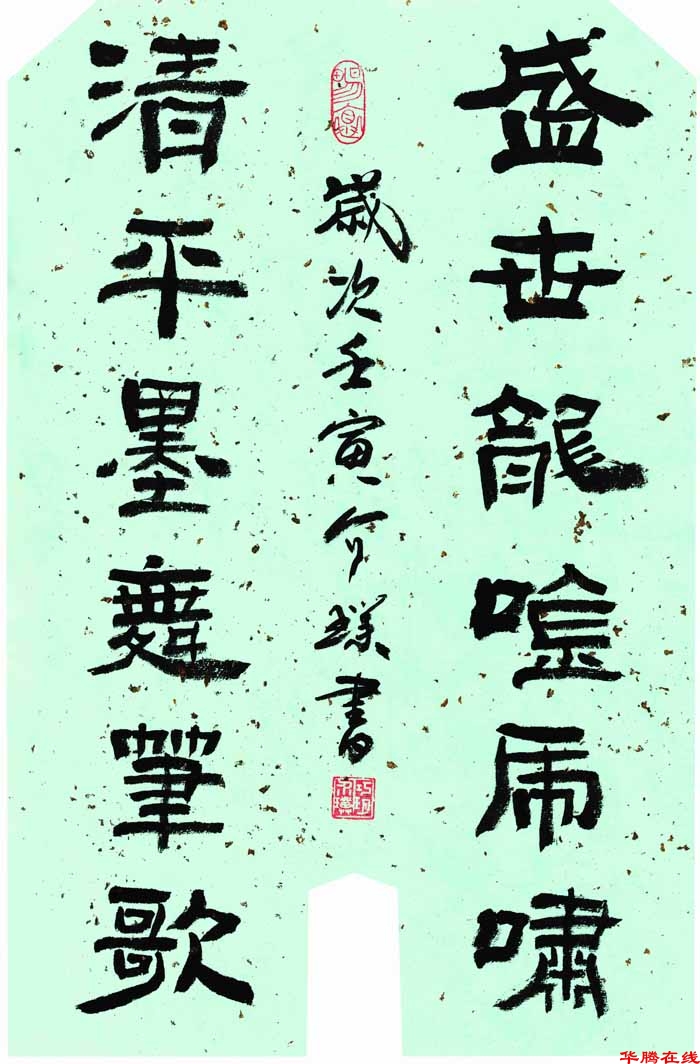 盛世龍唫虎嘯
清平墨舞筆歌
歲次壬寅介璞書
华腾在线